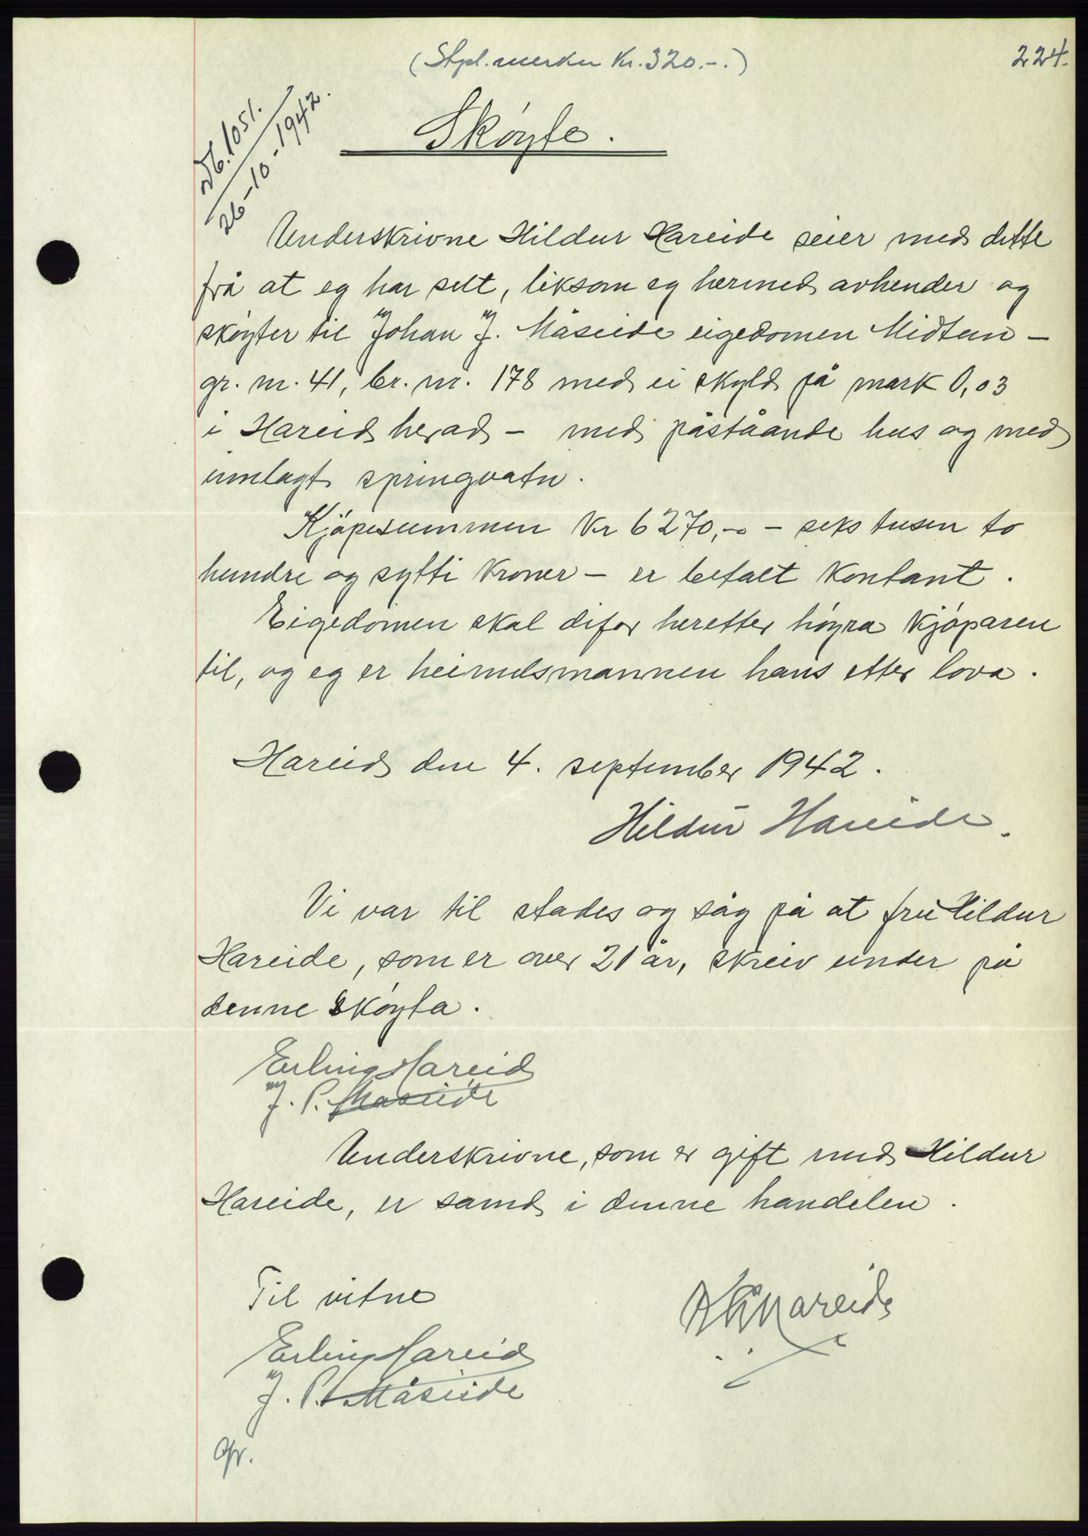 (Stpl.merker Kr.320.-.)
224.
Db.1051.
26-10-1942.
Skøyte.
Underskrivne Hildur Hareide seier med dette
frå at eg har selt, liksom eg hermed avhender og
skøyter til Johan J. Måseide eigedomen Midtun -
gr. nr. 41, br. nr. 178 med ei skyld på mark 0,03
i Hareid herad - med påståande hus og med
innlagt springvatn.
Kjøpesummen Kr 6270,-o - seks tusen to
hundre og sytti kroner - er betalt kontant.
Eigedomen skal difor heretter høyra kjøparen
til, og eg er heimelsmannen hans etter lova.
Hareid den 4. september 1942.
Hildur Hareide.
Vi var til stades og såg på at fru Hildur
Hareide, som er over 21 år, skreiv under på
denne skøyta.
Erling Hareid
J. P. Måseide
Underskrivne, som er gift med Hildur
Hareide, er samd i denne handelen.
Til vitne
Hareide
Erling Hareid
J. P. Måseide